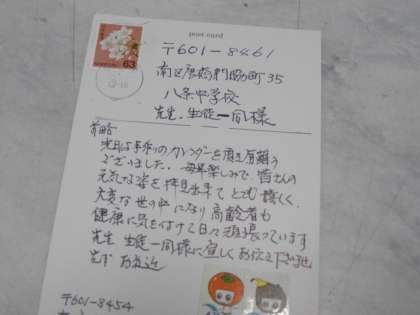 post card
63
〒601-8461
南区唐橋門脇町35
八条中学校
先生、生徒一同様
前略
先日は手作りのカレンダーを頂き有難う
ございました。毎年楽しみで皆さんの
元気な姿を拝見出来てとても嬉しく
大変な世の中になり高齢者も
健康に気を付けて日々頑張っています
先生 生徒一同様に宜しくお伝え下さいませ
〒601-8454